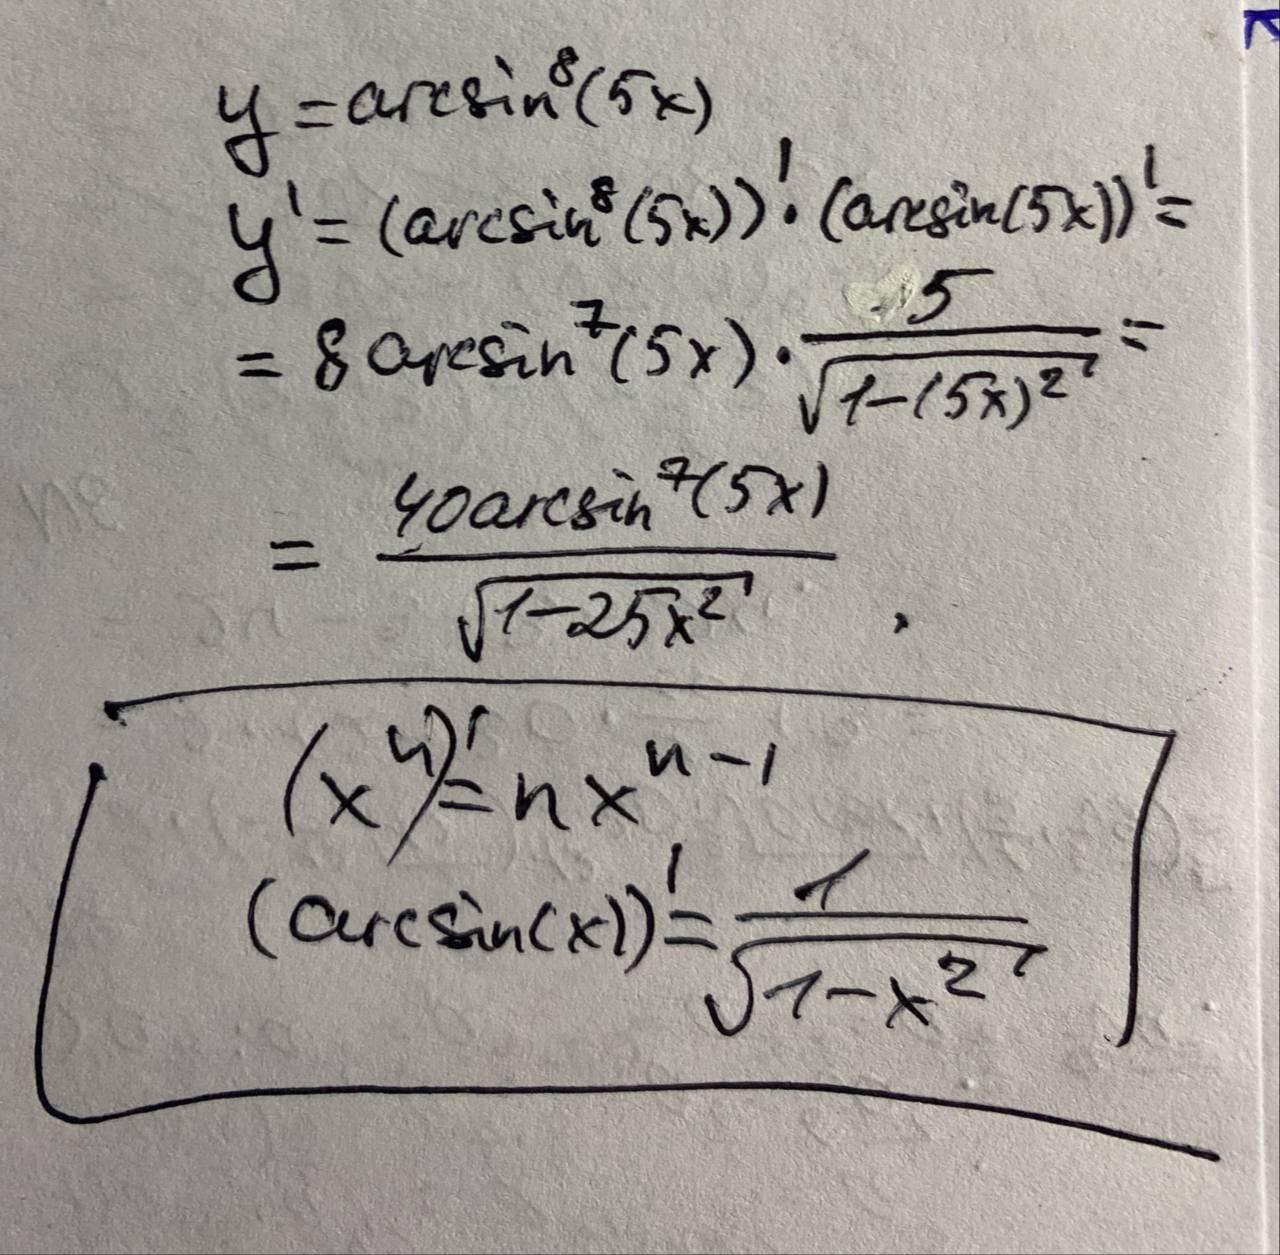 y = arcsin⁸(5x)
y' = (arcsin⁸(5x))' · (arcsin(5x))' =
= 8 arcsin⁷(5x) · 5/√(1-(5x)²) =
= 40arcsin⁷(5x)/√(1-25x²)
(xⁿ)' = nxⁿ⁻¹
(arcsin(x))' = 1/√(1-x²)